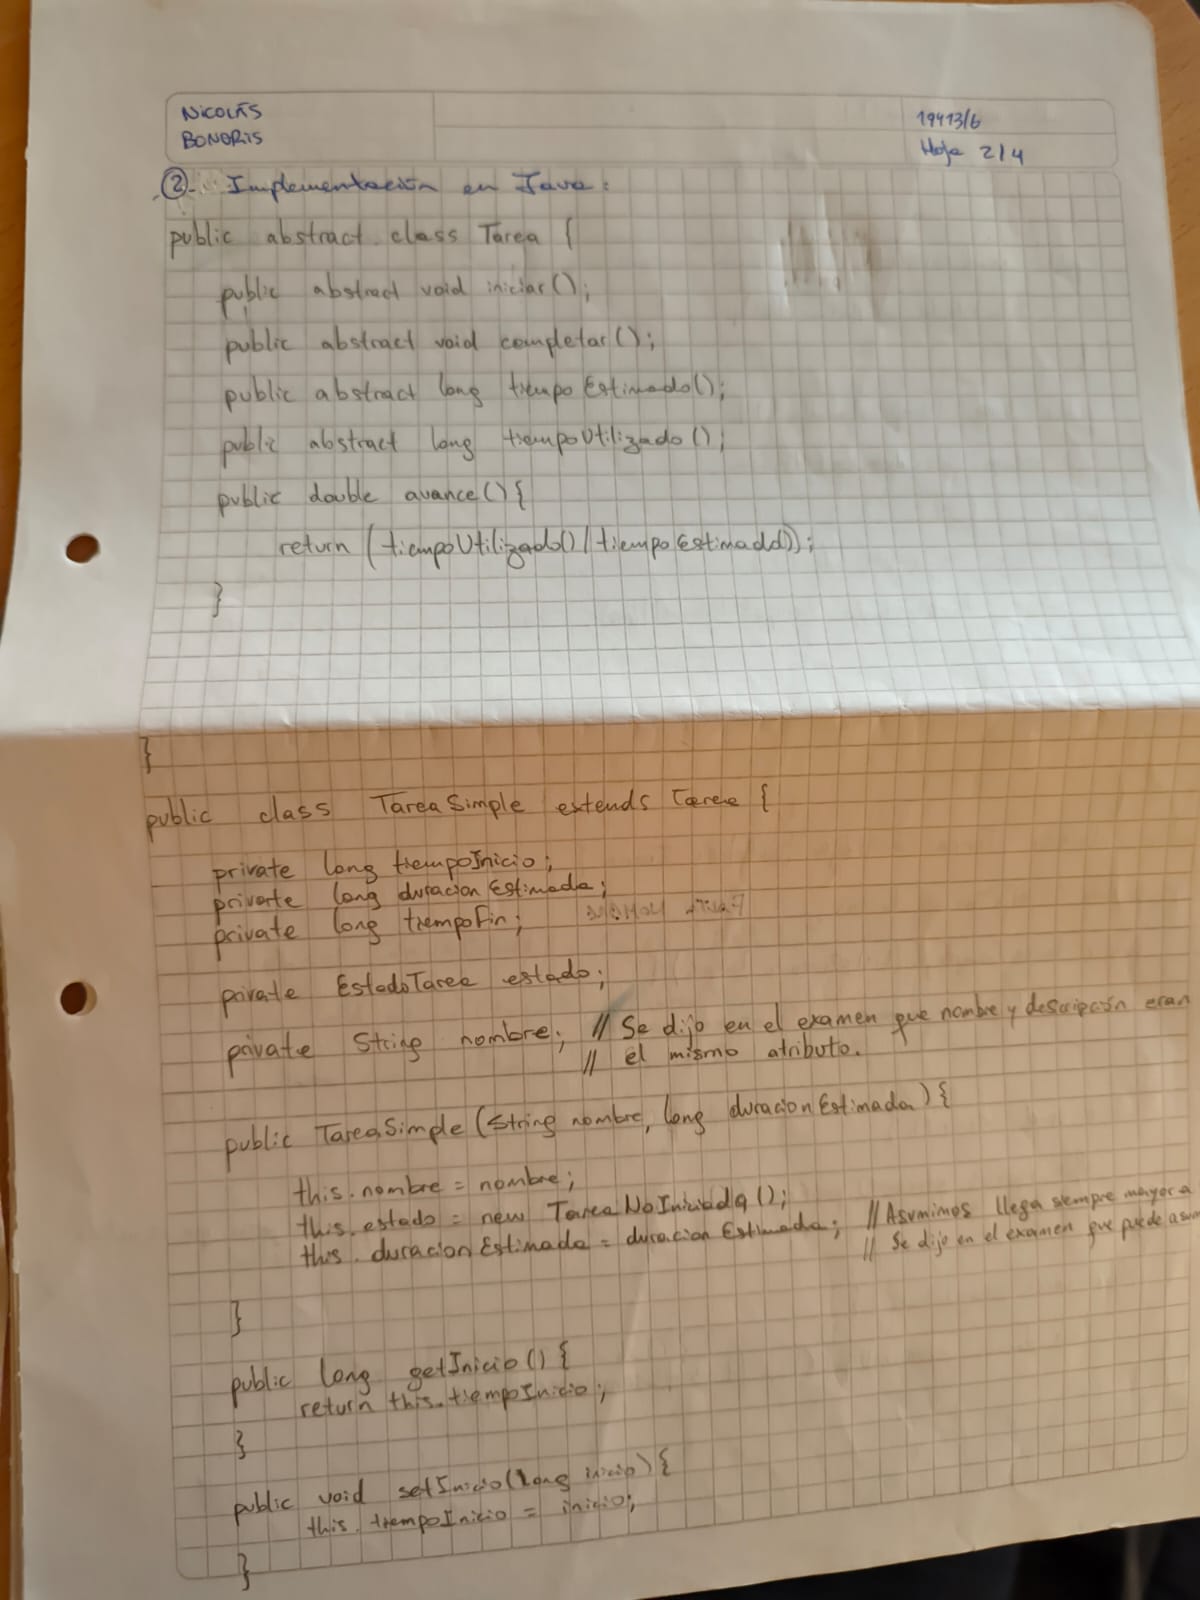 NICOLÁS
BONORIS
19413/6
Hoja 2/4
②. Implementación en Java:
public abstract class Tarea {
public abstract void iniciar();
public abstract void completar();
public abstract long tiempoEstimado();
public abstract long tiempoUtilizado();
public double avance(){
return (tiempoUtilizado()/tiempoEstimado());
}
}
public class TareaSimple extends Tarea {
private long tiempoInicio;
private long duracionEstimada;
private long tiempoFin;
private EstadoTarea estado;
private String nombre; // Se dijo en el examen que nombre y descripción eran
// el mismo atributo.
public TareaSimple (String nombre, long duracionEstimada) {
this.nombre = nombre;
this.estado = new TareaNoIniciada();
this.duracionEstimada = duracionEstimada; // Asumimos llega siempre mayor a
// Se dijo en el examen que puede
}
public long getInicio() {
return this.tiempoInicio;
}
public void setInicio(long inicio) {
this.tiempoInicio = inicio;
}